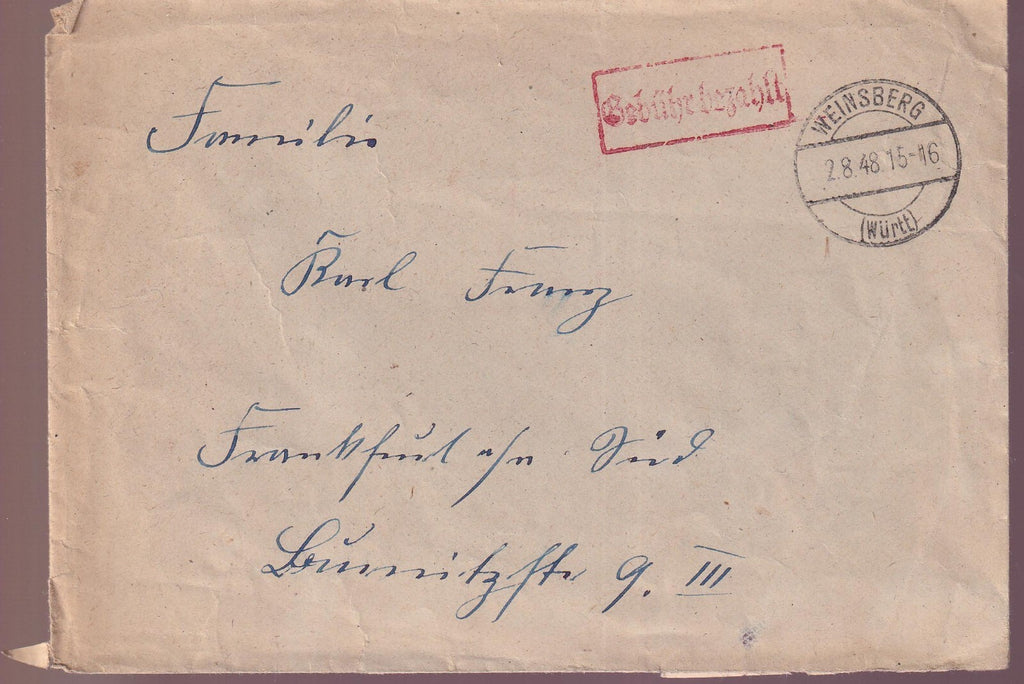 Gebühr bezahlt
WEINSBERG
2.8.48.15-16
(Württ)
Familie
Karl Franz
Frankfurt a/m Süd
Burnitzstr 9. III